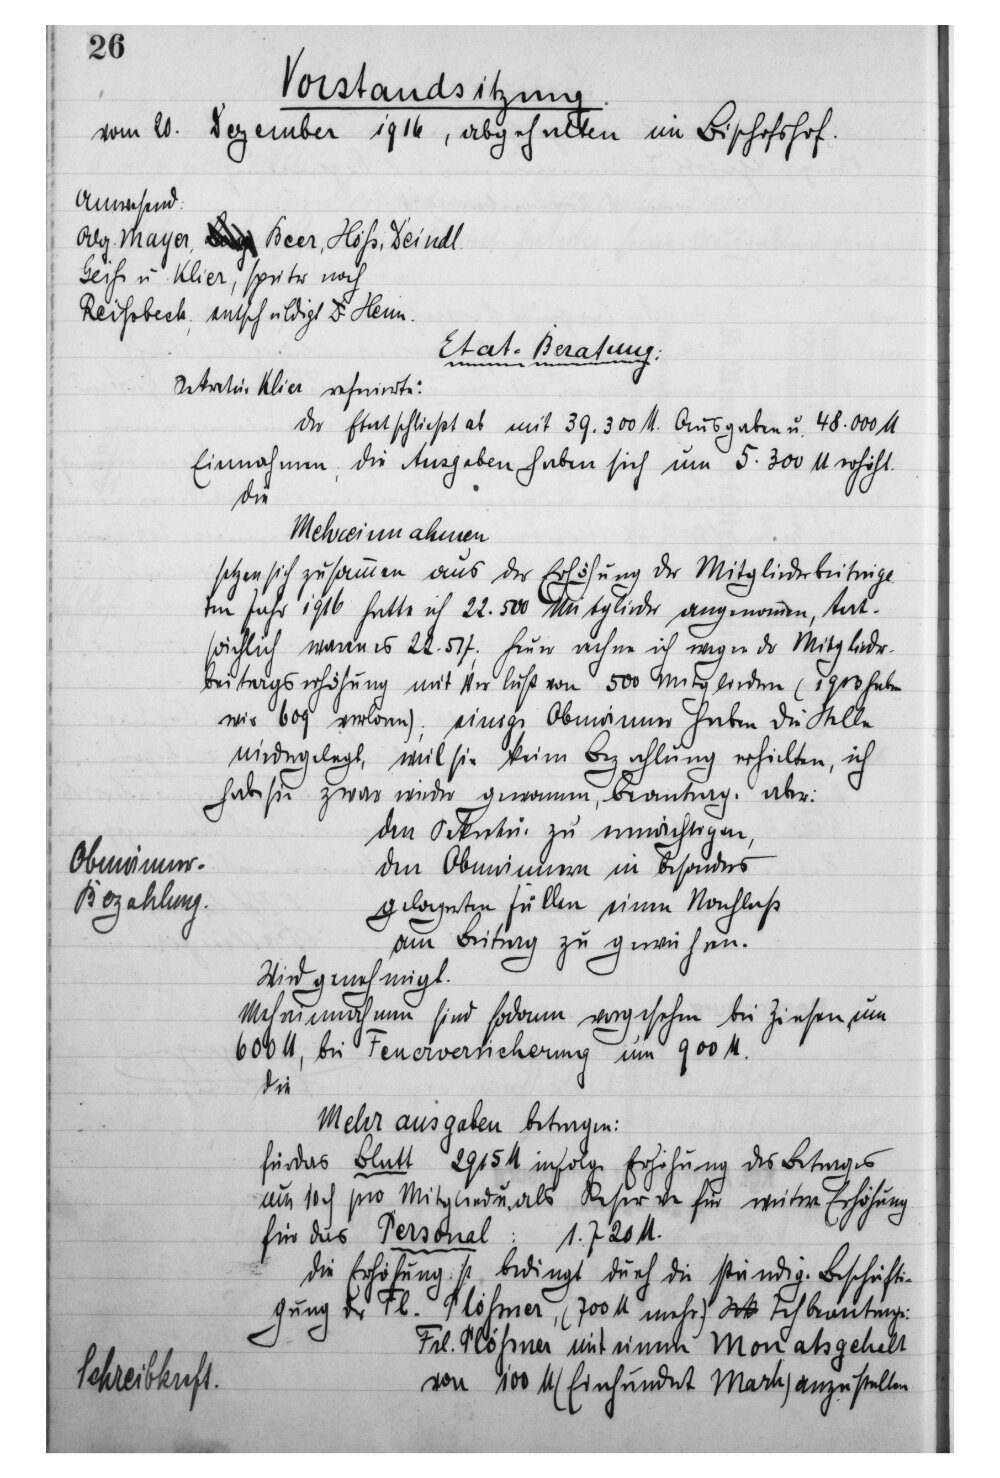 26
Vorstandsitzung.
vom 20. Dezember 1916, abgehalten im Bischofshof.
Anwesend:
Abg. Mayer, Beer, Höß, Deindl
Geiß u Klier, später noch
Reißbeck, entschuldigt Dr Heim.
Etat-Beratung:
Sekretär Klier referierte:
der Etat schließt ab mit 39.300 M. Ausgaben u. 48.000 M
Einnahmen, die Ausgaben haben sich um 5.300 M erhöht.
die
Mehreinnahmen
setzen sich zusammen aus der Erhöhung der Mitgliederbeiträge.
Im Jahr 1916 hatte ich 22.500 Mitglieder angenommen, tat-
sächlich waren es 22.517, heuer rechne ich wegen der Mitglieder-
beitragserhöhung mit Verlust von 500 Mitgliedern (1913 haben
wir 609 verloren), einige Obmänner haben die Stelle
niedergelegt, weil sie keine Bezahlung erhielten, ich
habe sie zwar wieder gewonnen, beantrage aber:
den Sekretär zu ermächtigen,
Obmänner-
Bezahlung.
den Obmännern in besonders
gelagerten Fällen einen Nachlaß
am Beitrag zu gewähren.
Wird genehmigt.
Mehreinnahmen sind sodann vorgesehen bei Zinsen um
600 M, bei Feuerversicherung um 900 M.
die
Mehrausgaben betragen:
für das Blatt 2915 M infolge Erhöhung des Betrages
um 10 pro Mitglied u. als Reserve für weitere Erhöhung
für das Personal: 1.720 M.
die Erhöhung ist bedingt durch die ständige Beschäfti-
gung der Fl. Plößner, (700 M mehr) Ich beantrage:
Frl. Plößner mit einem Monatsgehalt
Schreibkraft.
von 100 M (Einhundert Mark) anzustellen